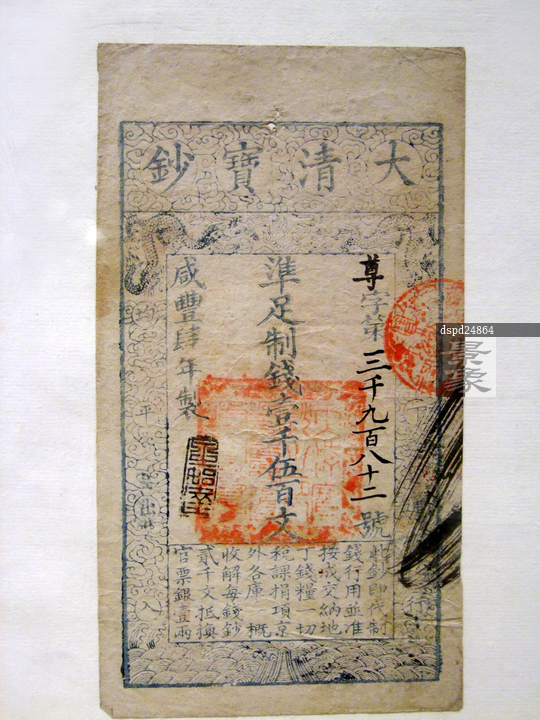 大清寶鈔
尊字第三千九百八十二號
準足制錢壹千伍百文
咸豐肆年製
此鈔即代制
錢行用並准
按成交納地
丁錢糧一切
稅課捐項京
外各庫一概
收解每錢鈔
貳千文抵換
官票銀壹兩
均平出入
dspd24864
景象